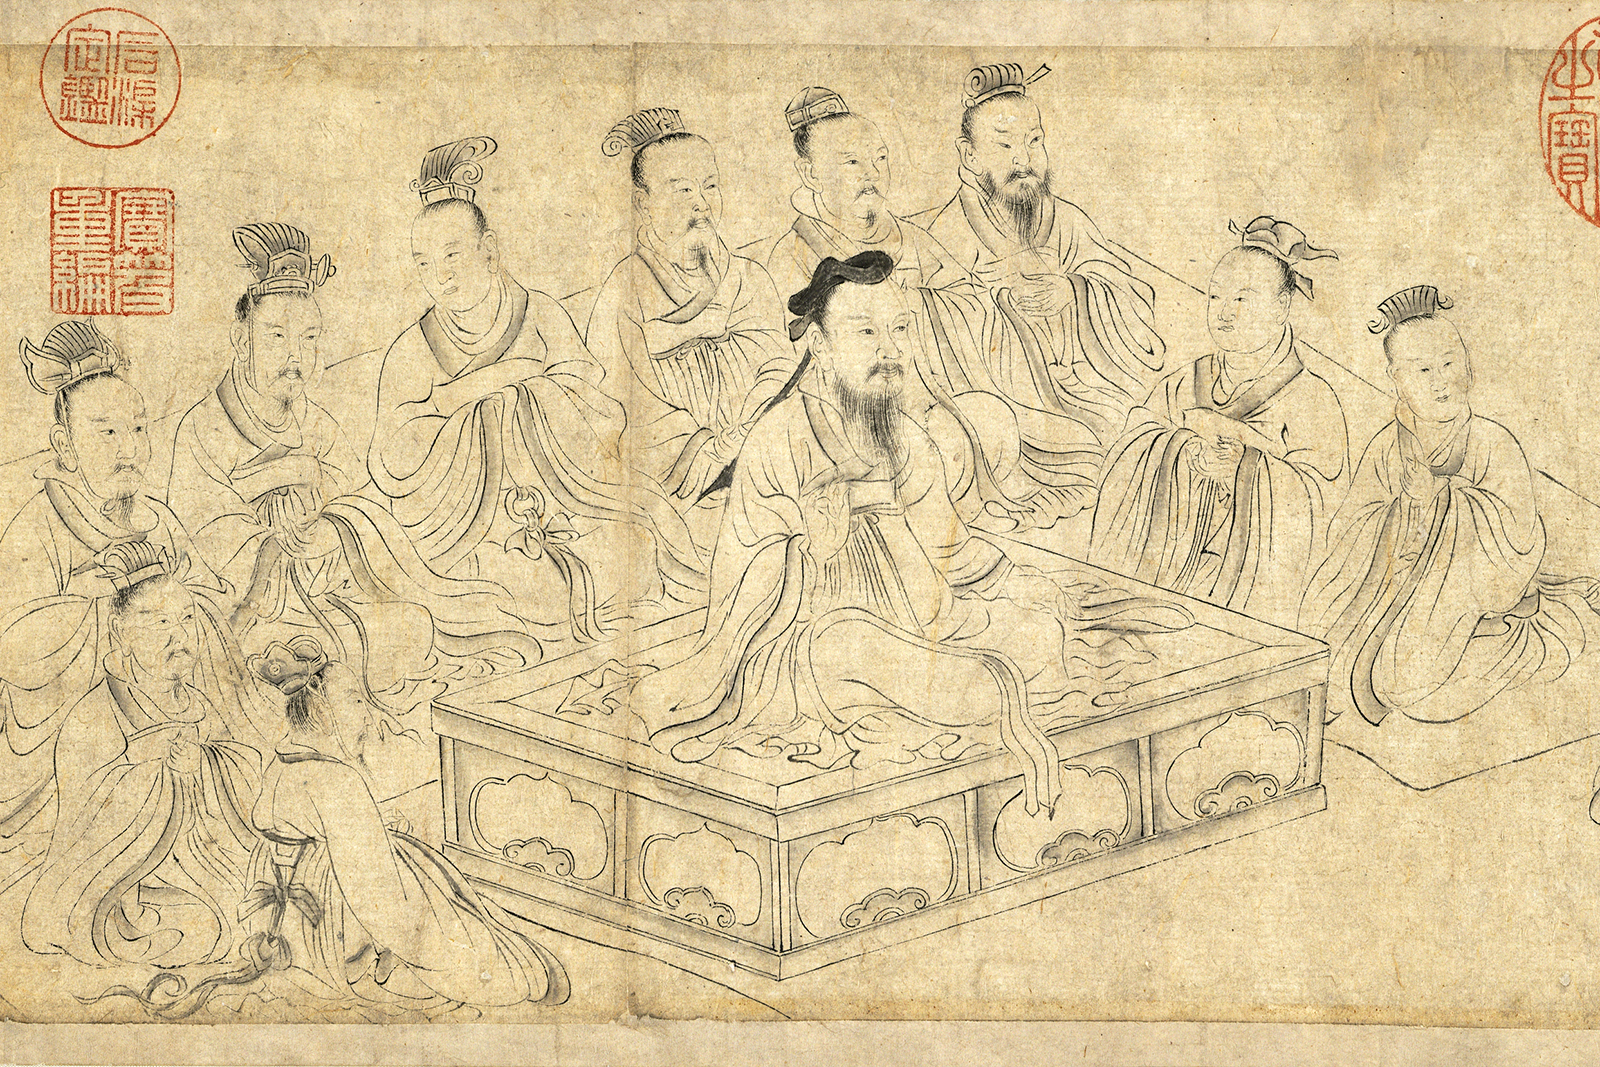 之寶
石渠
定鑑
寶笈
重編